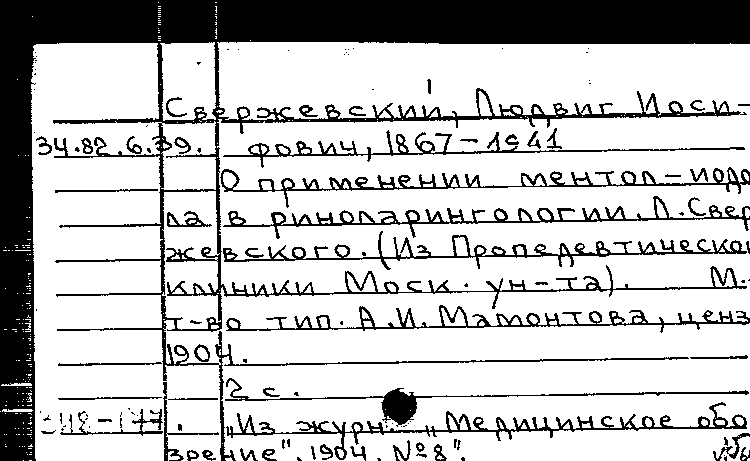 Свержевский, Людвиг Иоси-
34.82.6.39. фович, 1867-1941
О применении ментол-иодо
ла в риноларингологии. Л.Свер
жевского. (Из Пропедевтической
клиники Моск. ун-та). М.
т-во тип. А.И. Мамонтова, ценз
1904.
2 с.
„Из журн. „Медицинское обо
зрение". 1904. №8".